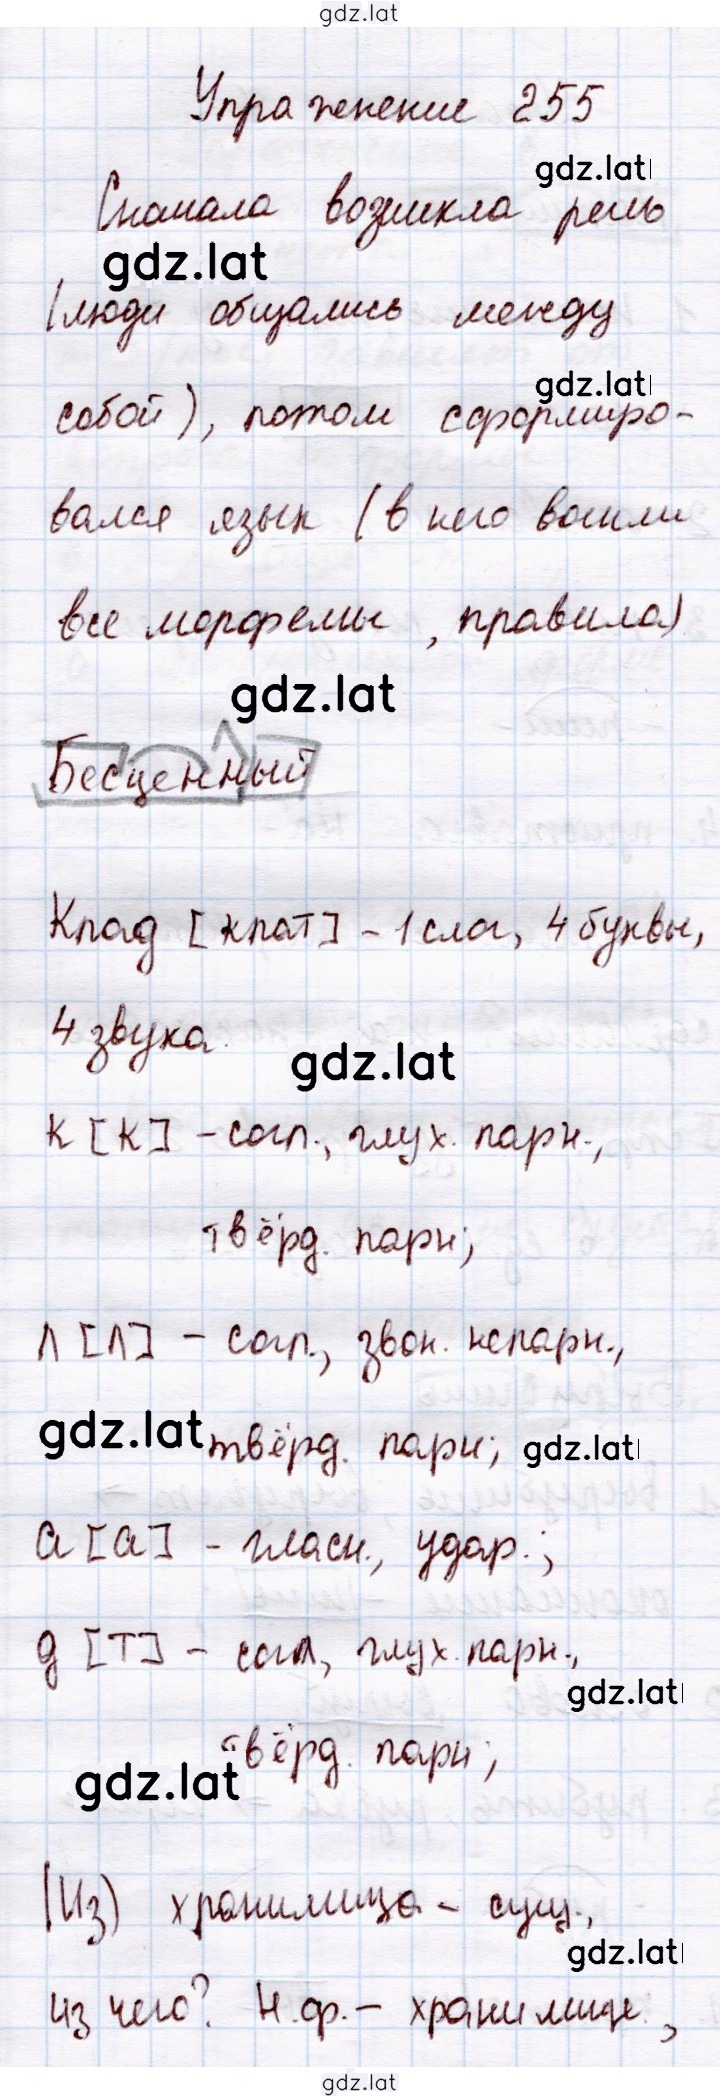 gdz.lat
Упражнение 255
gdz.lat
Сначала возникла речь
gdz.lat
(люди общались между
gdz.lat
собой), потом сформиро-
вался язык (в него вошли
все морфемы, правила)
gdz.lat
Бесценный
Клад [клат] - 1 слог, 4 буквы,
4 звука.
gdz.lat
К [К] - согл., глух. парн.,
твёрд. парн;
Л [Л] - согл., звон. непарн.,
gdz.lat твёрд. парн; gdz.lat
а [а] - гласн., удар.;
д [Т] - согл, глух. парн.,
gdz.lat
твёрд. парн;
gdz.lat
(Из) хранилища - сущ.,
gdz.lat
из чего? Н.ф. - хранилище,
gdz.lat